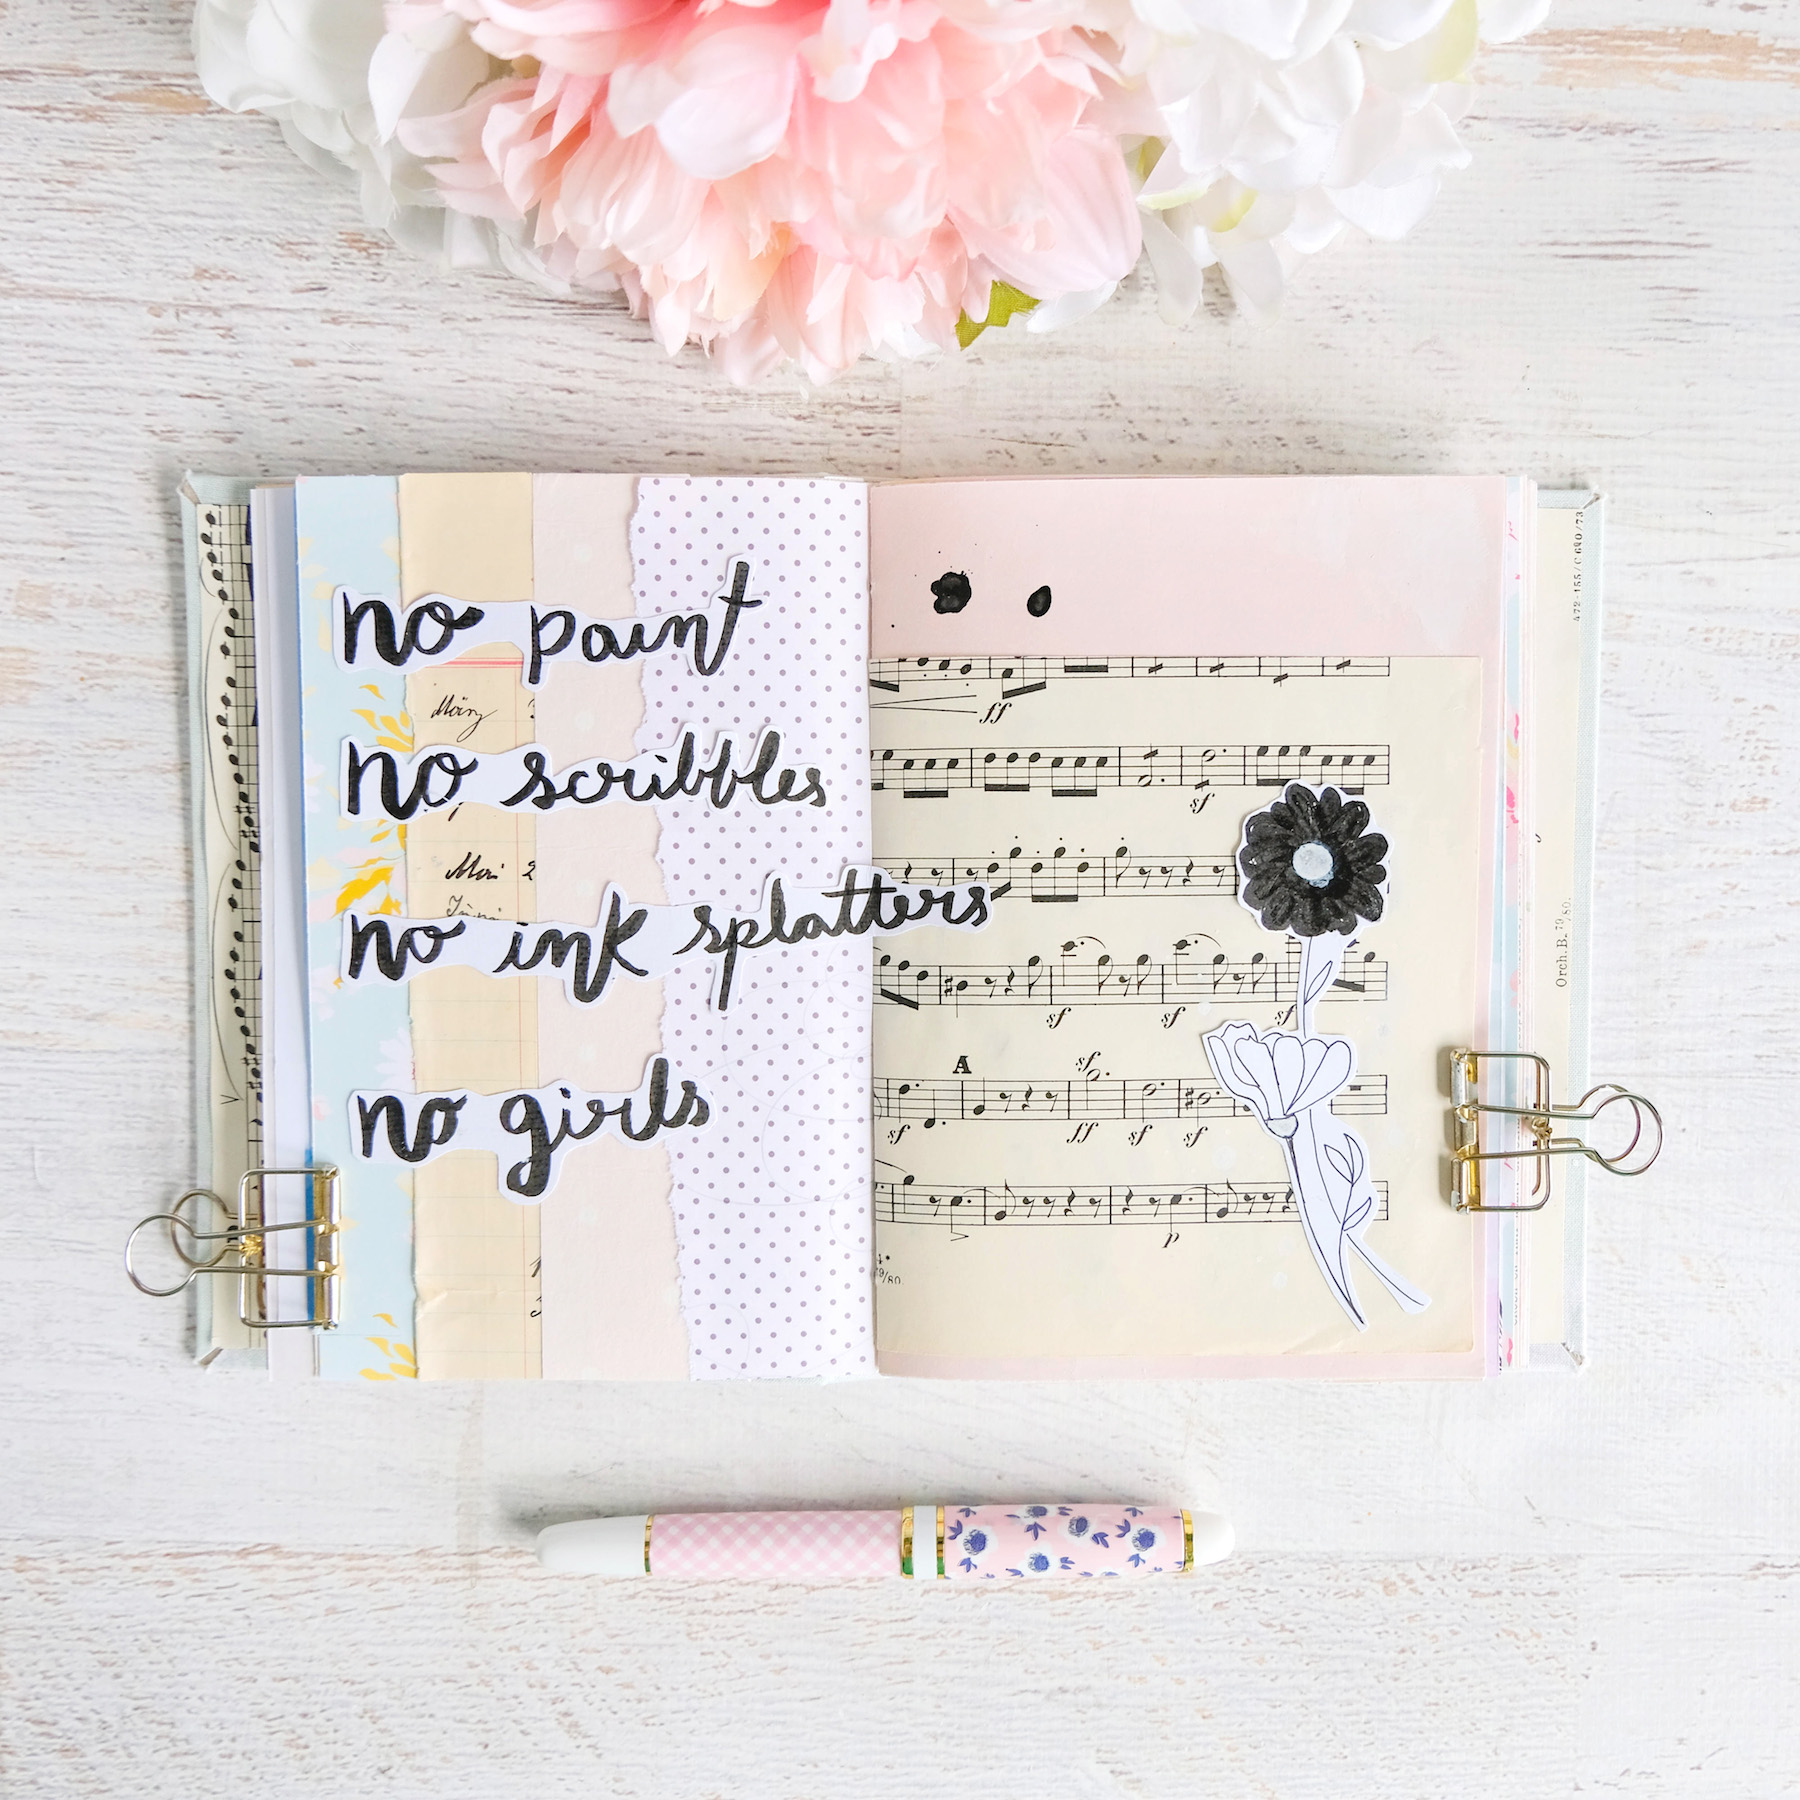 no paint
no scribbles
no ink splatters
no girls
März
Mai 2
ff
sf
sf sf sf
A sf
sf ff sf sf
p
79/80
472-155/C 690/73
Orch. B. 79/80.